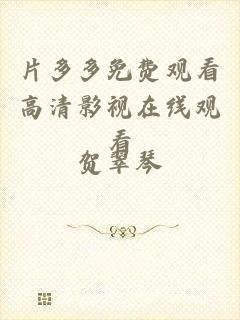 片多多免费观看
高清影视在线观
看
贺翠琴